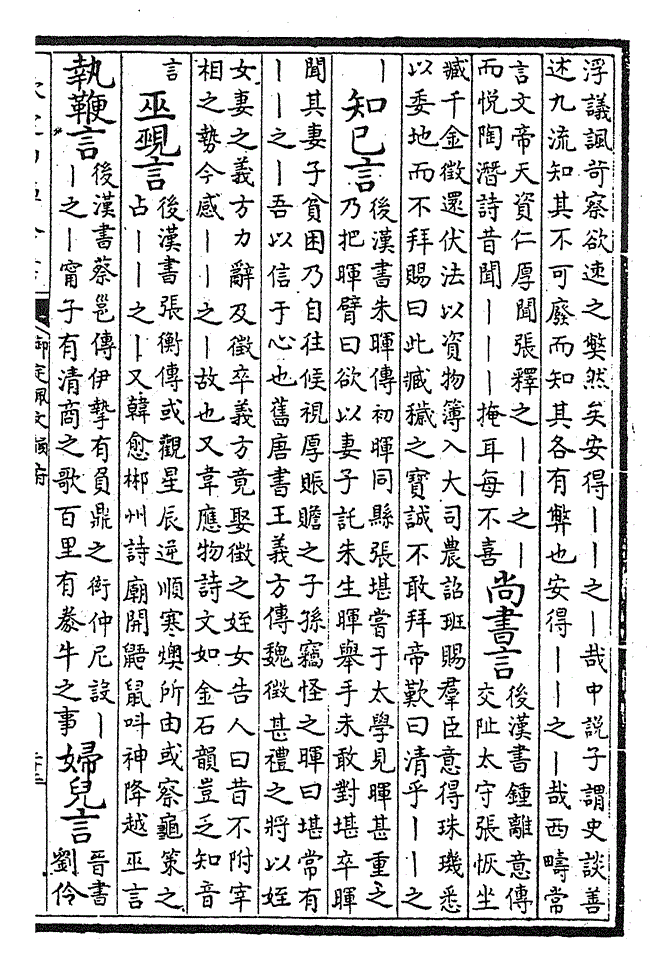 浮議諷苛察欲速之獘然矣安得丨丨之丨哉中説子謂史談善
述九流知其不可廢而知其各有獘也安得丨丨之丨哉西疇常
言文帝天資仁厚聞張釋之丨丨之丨
而悦陶潛詩昔聞丨丨丨掩耳每不喜
尚書言
後漢書鍾離意傳
交阯太守張恢坐
臧千金徵還伏法以資物簿入大司農詔班賜羣臣意得珠璣悉
以委地而不拜賜曰此臧穢之寳誠不敢拜帝歎曰清乎丨丨之
丨
知己言
後漢書朱暉傳初暉同縣張堪嘗于太學見暉甚重之
乃把暉臂曰欲以妻子託朱生暉舉手未敢對堪卒暉
聞其妻子貧困乃自往候視厚賑贍之子孫竊怪之暉曰堪常有
丨丨之丨吾以信于心也舊唐書王義方傳魏徵甚禮之將以姪
女妻之義方力辭及徵卒義方竟娶徵之姪女告人曰昔不附宰
相之勢今感丨丨之丨故也又韋應物詩文如金石韻豈乏知音
言
巫覡言
後漢書張衡傳或觀星辰逆順寒燠所由或察龜策之
占丨丨之丨又韓愈郴州詩廟開鼯鼠呌神降越巫言
執鞭言
後漢書蔡邕傳伊摯有負鼎之衒仲尼設丨
丨之丨甯子有清商之歌百里有豢牛之事
婦兒言
晉書
劉伶
御定佩文韻府